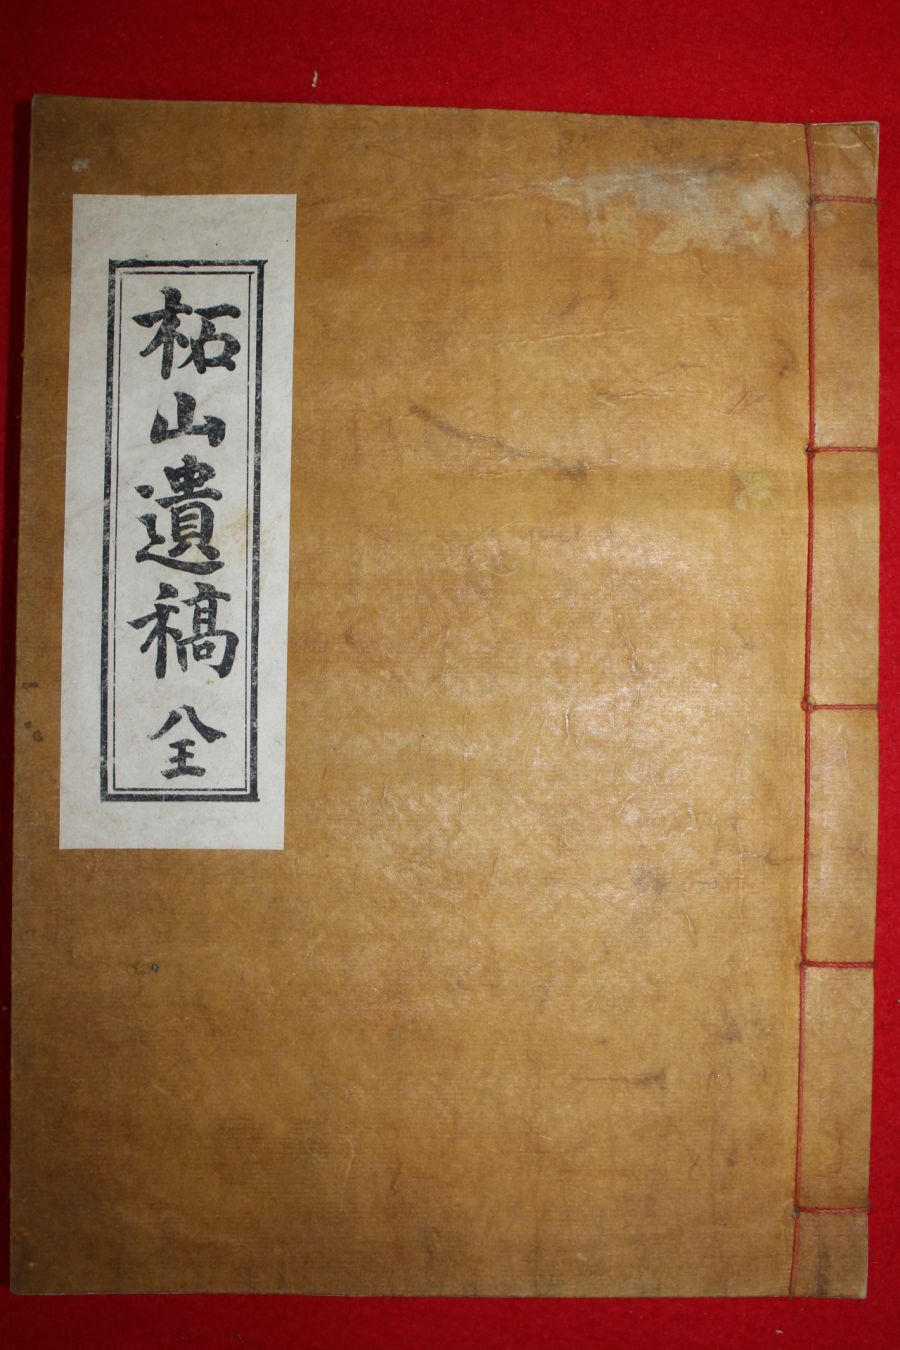 柘山遺稿 全